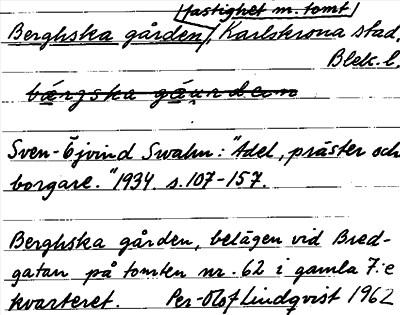 [fastighet m. tomt]
Berghska gården, Karlskrona stad,
Blek. l.
bærgska gåɷrdeɷn
Sven-Öjvind Swahn: "Adel, präster och
borgare." 1934. s. 107-157.
Berghska gården, belägen vid Bred-
gatan på tomten nr. 62 i gamla 7:e
kvarteret. Per-Olof Lindqvist 1962